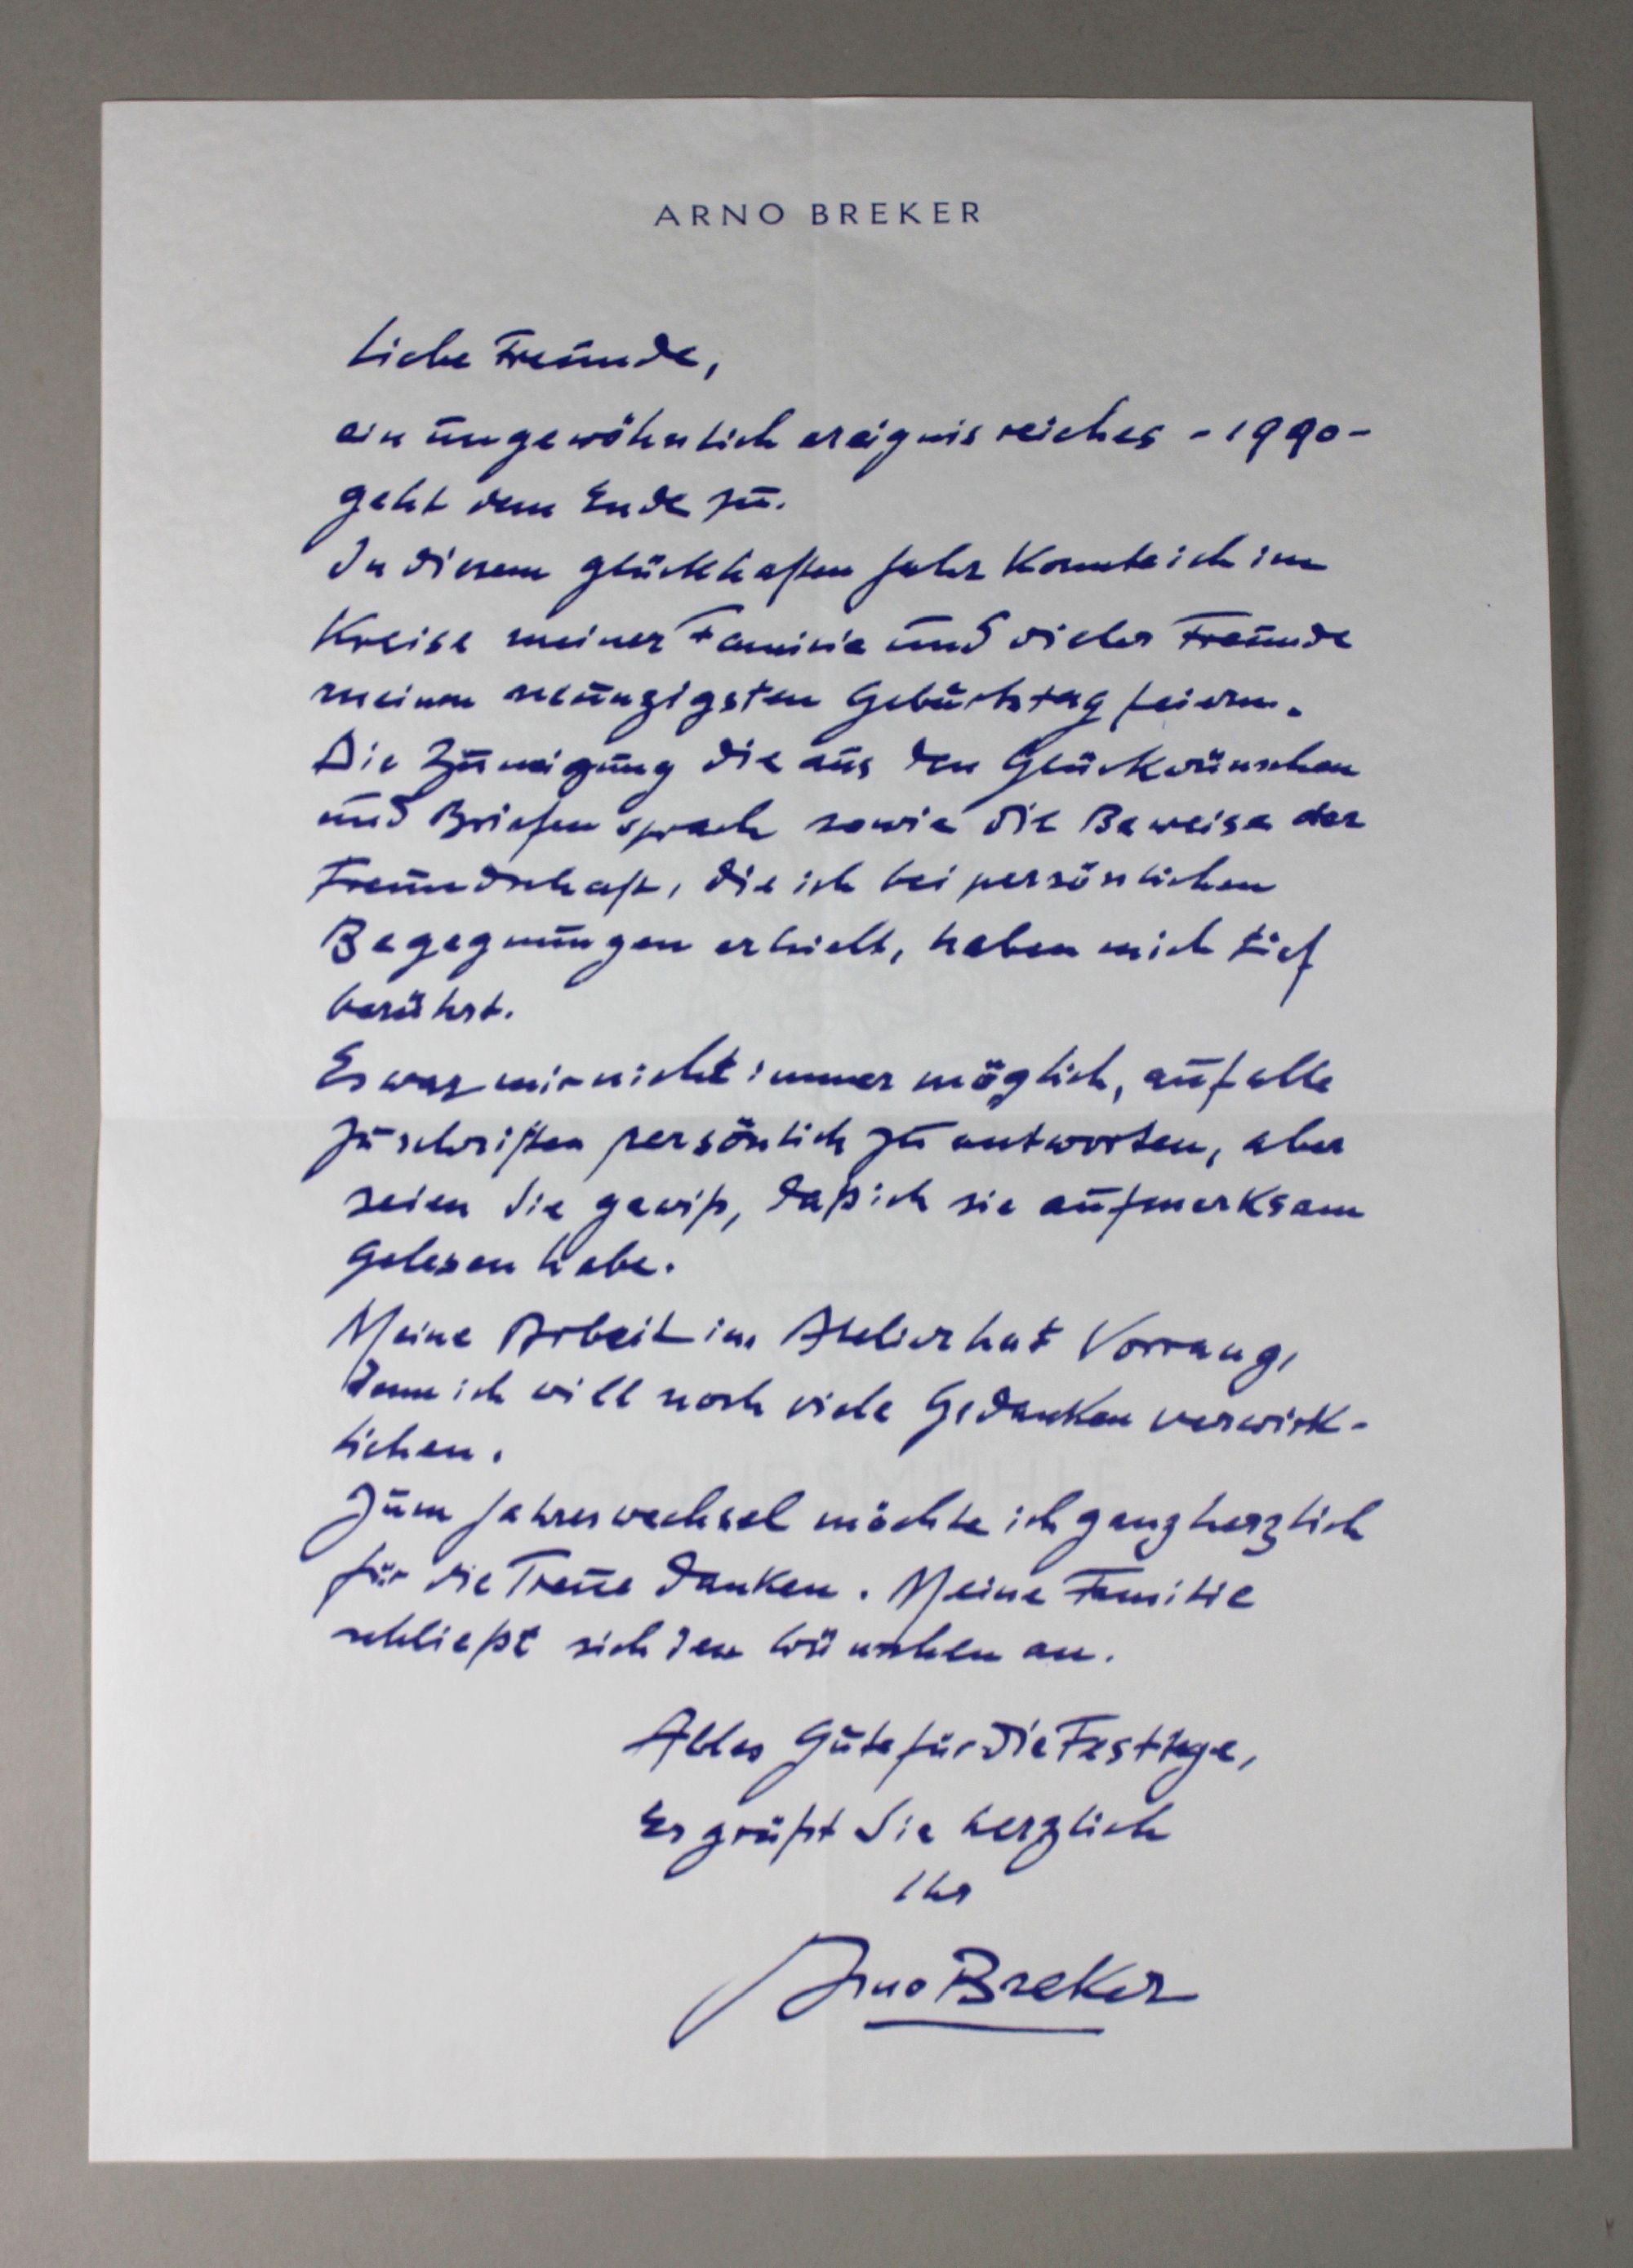 ARNO BREKER
Liebe Freunde,
ein ungewöhnlich ereignisreiches - 1990 -
geht dem Ende zu.
In diesem glückhaften Jahr konnte ich im
Kreise meiner Familie und vieler Freunde
meinen neunzigsten Geburtstag feiern.
Die Zuneigung die aus den Glückwünschen
und Briefen sprach sowie die Beweise der
Freundschaft, die ich bei persönlichen
Begegnungen erhielt, haben mich tief
berührt.
Es war mir nicht immer möglich, auf alle
Zuschriften persönlich zu antworten, aber
seien Sie gewiß, daß ich sie aufmerksam
gelesen habe.
Meine Arbeit im Atelier hat Vorrang,
denn ich will noch viele Gedanken verwirk-
lichen.
Zum Jahreswechsel möchte ich ganz herzlich
für die Treue danken. Meine Familie
schließt sich den Wünschen an.
Alles Gute für die Festtage,
Es grüßt Sie herzlich
Ihr
Arno Breker